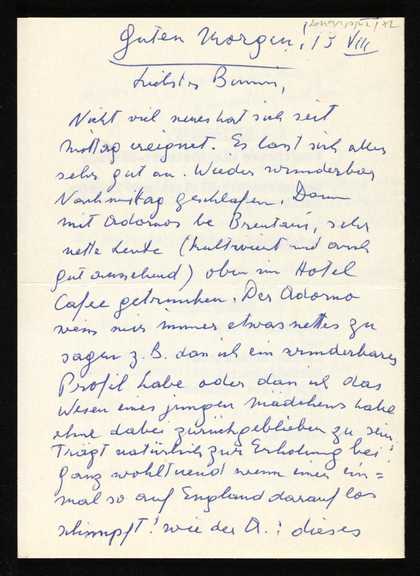 Guten Morgen, 15 VIII
Liebstes Bimmi,
Nicht viel neues hat sich seit
Mittag ereignet. Es lasst sich alles
sehr gut an. Wieder wunderbar
Nachmittag geschlafen. Dann
mit Adornos be Brentani, sehr
nette Leute (kultiviert und auch
gut aussehend) oben im Hotel
Cafee getrunken. Der Adorno
weiss mir immer etwas nettes zu
sagen z.B. dass ich ein wunderbares
Profil habe oder dass ich das
Wesen eines jungen Mädchens habe
ohne dabei zurückgeblieben zu sein.
Trägt natürlich zur Erholung bei!
Ganz wohltuend wenn einer ein=
mal so auf England darauf los
schimpft! wie der A.! dieses